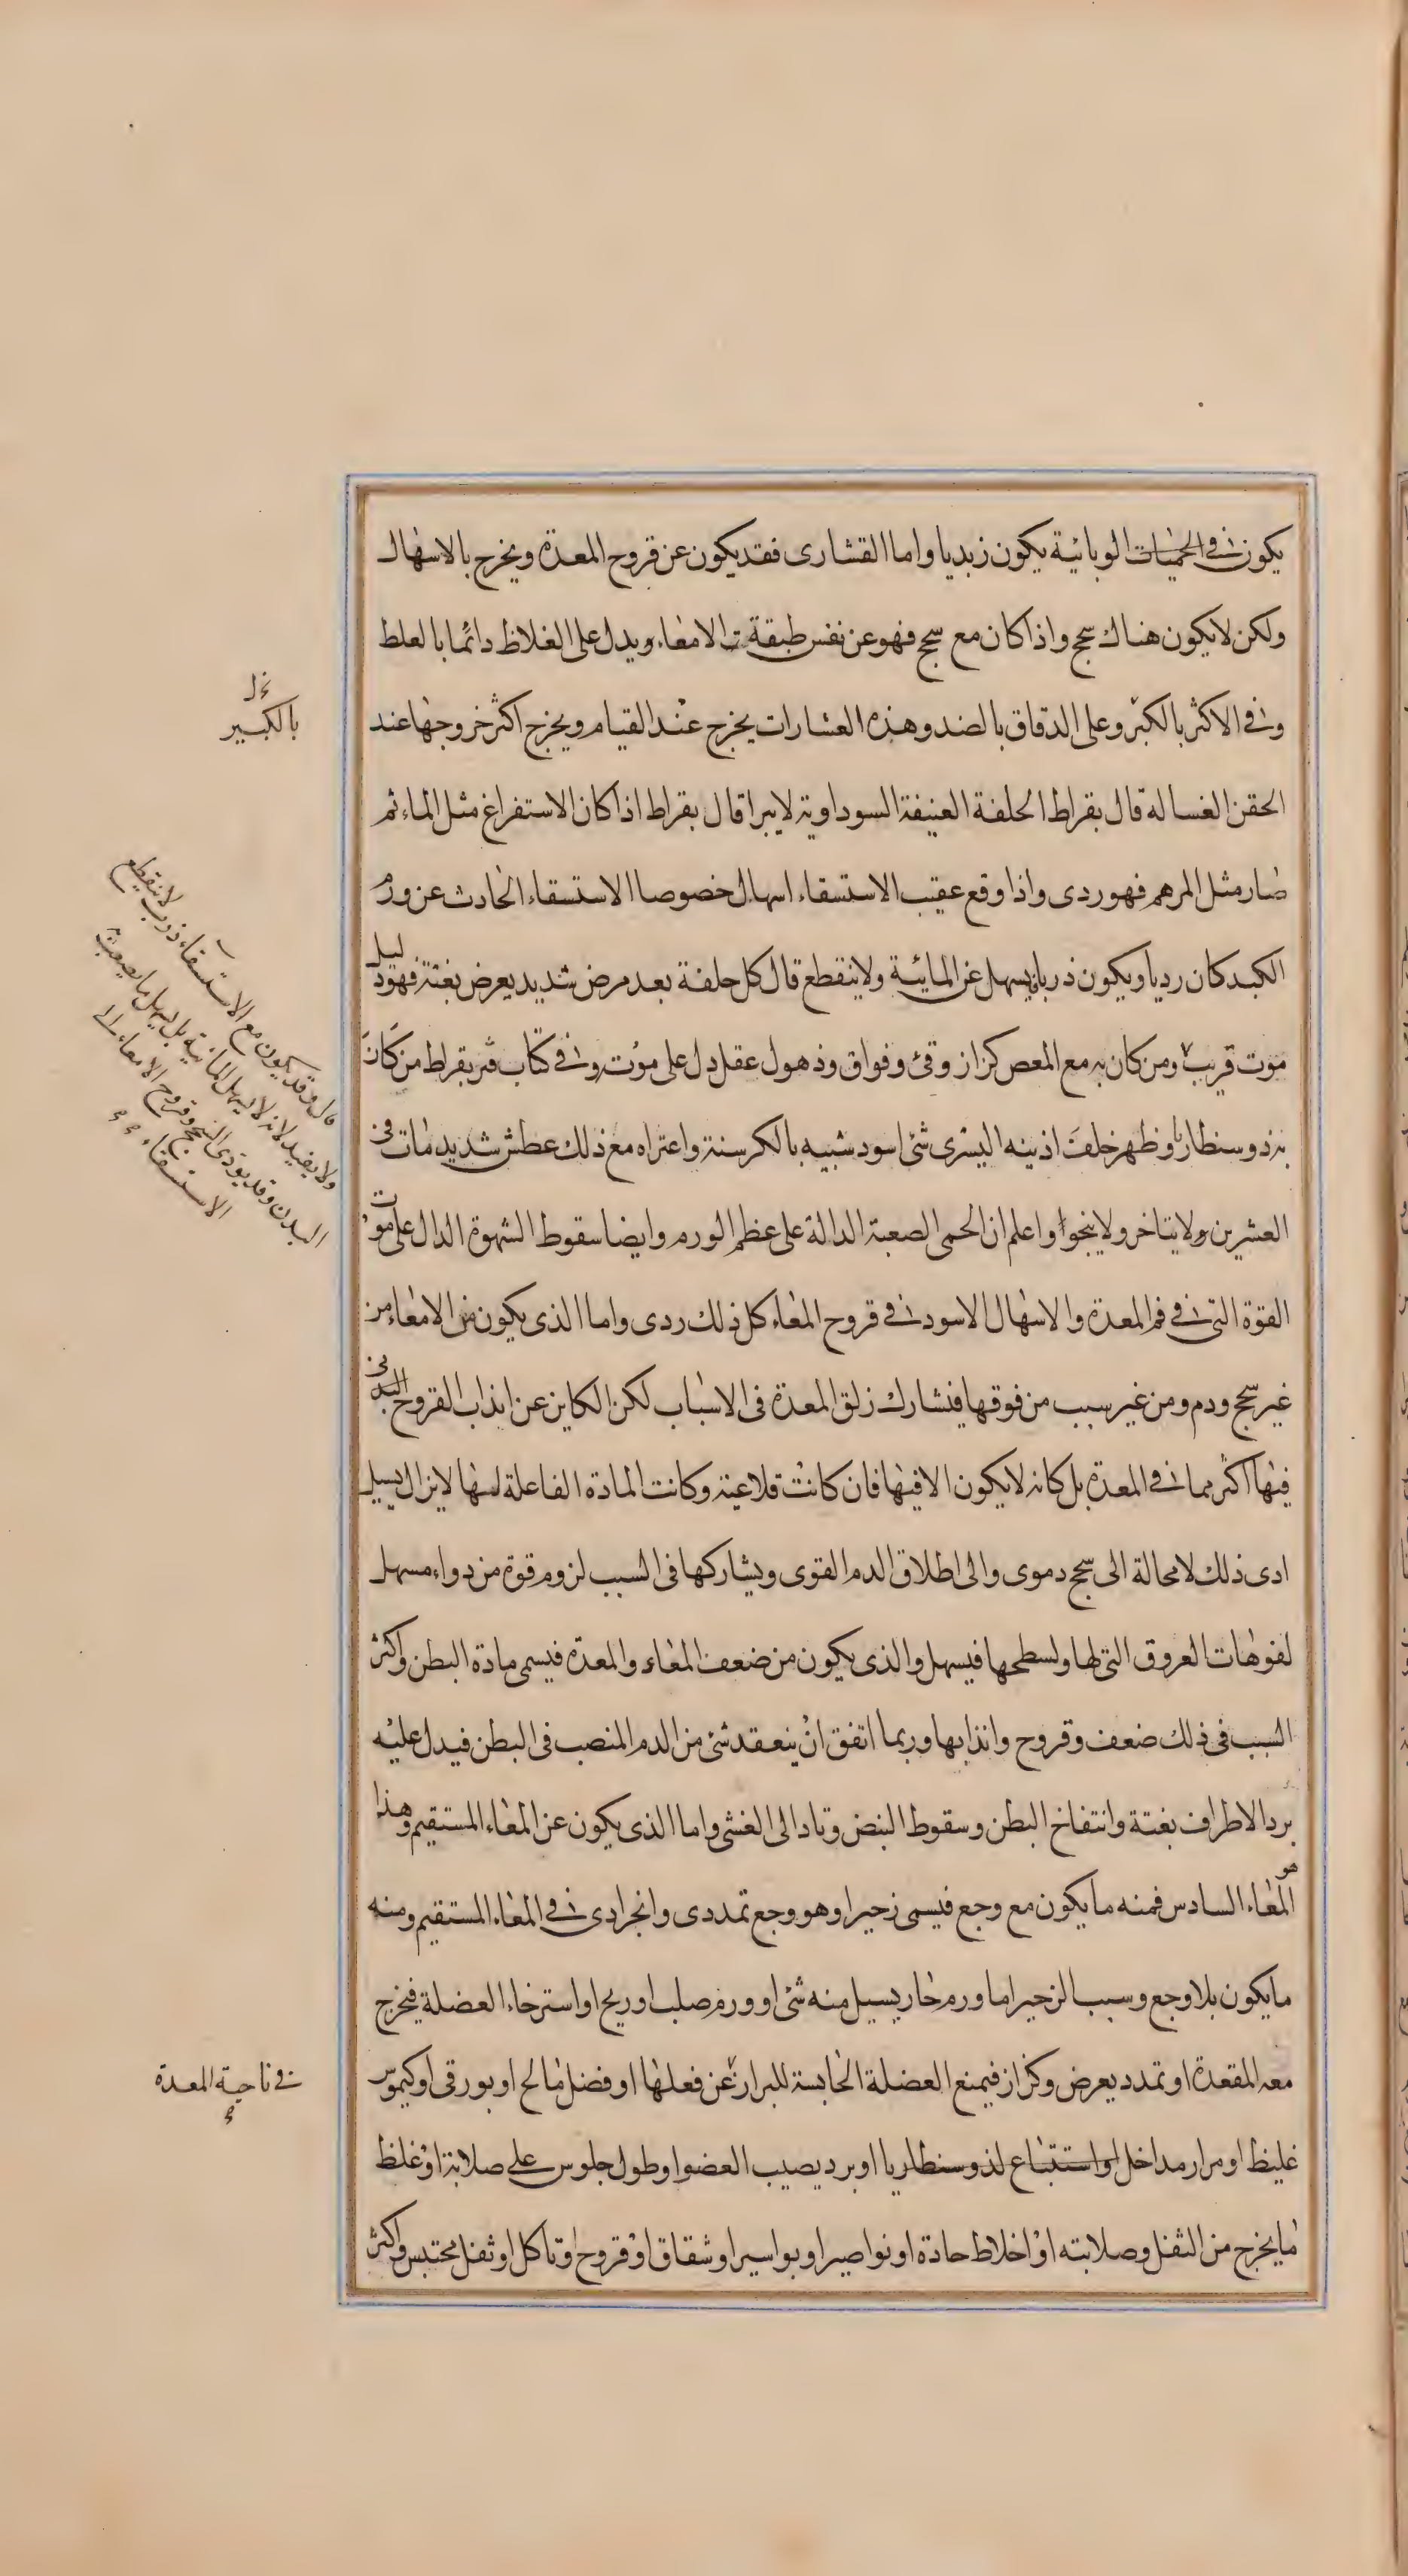 يكون في الحميات الوبائية يكون زبديا واما القشارى فقد يكون عن قروح المعدة ويخرج بالاسهال
ولكن لايكون هناك سحج واذا كان مع سحج فهو عن نفس طبقة الامعاء ويدل على الغلاظ دائما بالغلظ
وفي الاكثر بالكبر وعلى الدقاق بالضد وهذه العشارات يخرج عند القيام ويخرج اكثر خروجها عند
بالكبير
الحقن الغساله قال بقراط الحلفة العنيفة السوداوية لايبرا قال بقراط اذا كان الاستفراغ مثل الماء ثم
صار مثل المرهم فهو ردى واذا وقع عقيب الاستسقاء اسهال خصوصا الاستسقاء الحادث عن ورم
الكبد كان رديا ويكون ذربا يسهل عن المائية ولاينقطع قال كل حلفة بعد مرض شديد يعرض بغتة فهو دليل
موت قريب ومن كان به مع المغص كزاز وقئ وفواق وذهول عقل دل على موت وفي كتاب قبر بقراط من كان
به ذوسنطاريا وظهر خلف اذينه اليسرى شئ اسود شبيه بالكرسنة واعتراه مع ذلك عطش شديد مات في
العشرين ولايتاخر ولاينجوا واعلم ان الحمى الصعبة الدالة على عظم الورم وايضا سقوط الشهوة الدال على موت
القوة التي في فم المعدة والاسهال الاسود في قروح المعاء كل ذلك ردى واما الذى يكون من الامعاء من
غير سحج ودم ومن غير سبب من فوقها فتشارك زلق المعدة فى الاسباب لكن الكاين عن انذاب القروح التي
فيها اكثر مما في المعدة بل كانه لايكون الا فيها فان كانت قلاعية وكانت المادة الفاعلة لها لايزال يسيل
ادى ذلك لامحالة الى سحج دموى والى اطلاق الدم القوى ويشاركها فى السبب لزوم قوة من دواء مسهل
لفوهات العروق التي لها ولسطحها فيسهل والذى يكون من ضعف المعاء والمعدة فيسمى مادة البطن واكثر
السبب فى ذلك ضعف وقروح وانذابها وربما اتفق ان ينعقد شئ من الدم المنصب فى البطن فيدل عليه
برد الاطراف بغتة وانتفاخ البطن وسقوط النبض وتادا الى الغشى واما الذى يكون عن المعاء المستقيم وهذا
هو المعاء السادس فمنه مايكون مع وجع فيسمى زحيرا وهو وجع تمددى وانجرادى في المعاء المستقيم ومنه
مايكون بلا وجع وسبب الزحير اما ورم حار يسيل منه شئ او ورم صلب او ريح او استرخاء العضلة فيخرج
معه المقعدة او تمدد يعرض وكزاز فيمنع العضلة الحابسة للبراز عن فعلها او فضل مالح او بورقى اوكيموس
في ناحية المعدة
غليظ او مرار مداخل او استتباع لذوسنطاريا او برد يصيب العضو او طول جلوس على صلابة او غلظ
مايخرج من الثفل وصلابته او اخلاط حادة او نواصير او بواسير او شقاق او قروح او تاكل او ثفل محتبس واكثر
قال وقد يكون مع الاستسقاء ذرب لاينقطع
ولايفيد لانه لايسهل المائية بل يسهل مايصعب
البدن وقد يودى السحج وقروح الامعاء الى
الاستسقاء